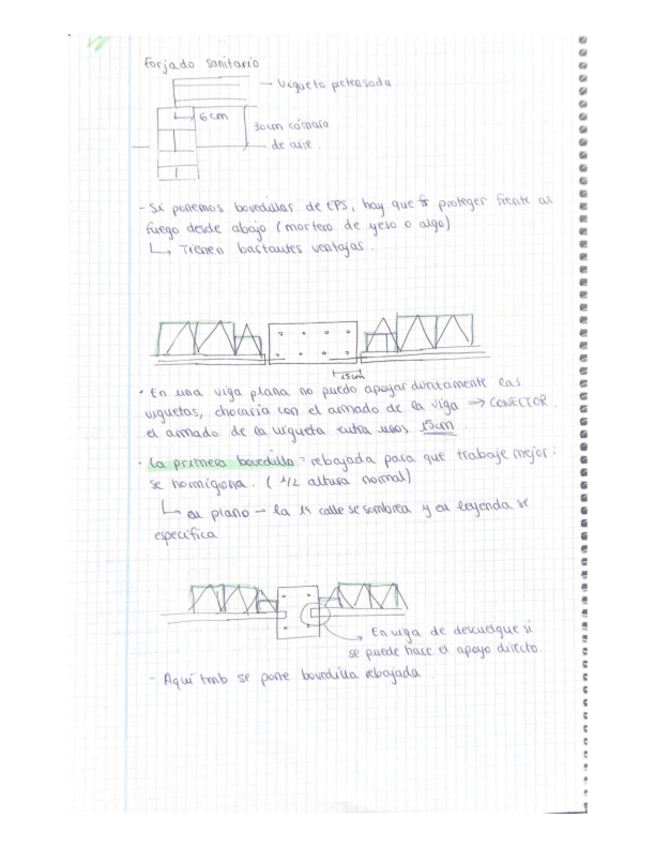 Forjado sanitario
— Vigueta pretensada
6cm
30cm cámara
de aire.
- Si ponemos bovedillas de EPS, hay que proteger frente al
fuego desde abajo (mortero de yeso o algo)
↳ Tienen bastantes ventajas.
15cm
· En una viga plana no puedo apoyar directamente las
viguetas, chocaría con el armado de la viga ⇒ CONECTOR.
el armado de la vigueta entra unos 15cm
· La primera bovedilla = rebajada para que trabaje mejor:
se hormigona. (1/2 altura normal)
↳ en plano — la 1ª calle se sombrea y en leyenda se
especifica
En viga de descuelgue si
se puede hace el apoyo directo.
- Aquí tmb se pone bovedilla rebajada.